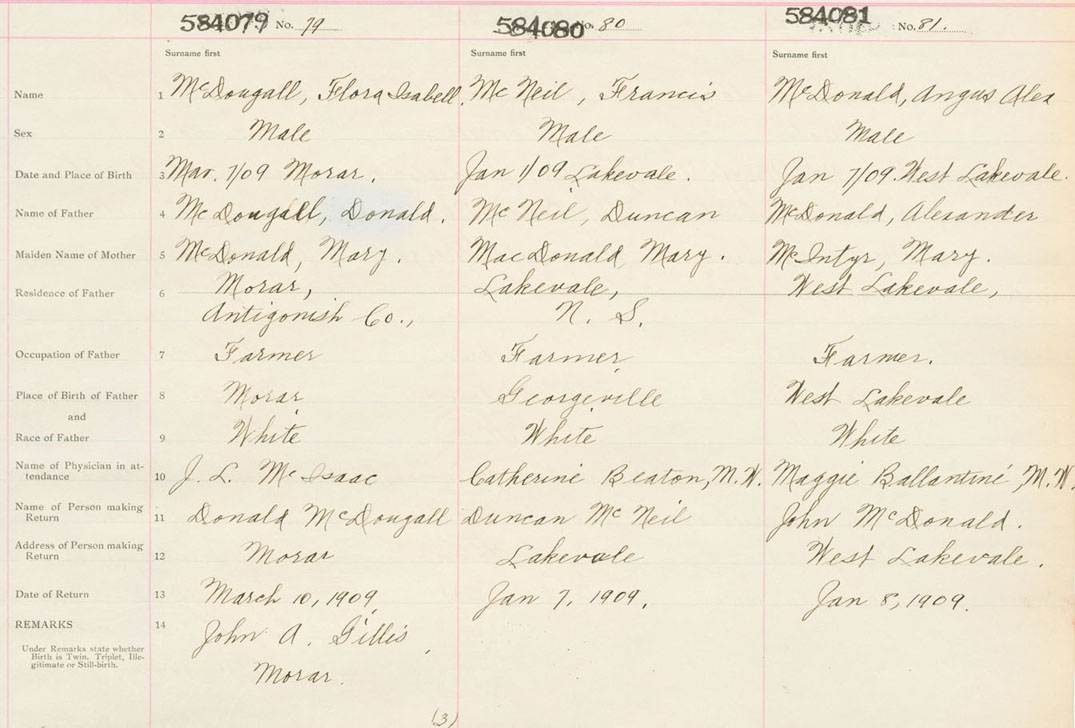 584079 No. 79 584080 No. 80 584081 No. 81.
Surname first Surname first Surname first
Name 1 McDougall, Flora Isabell. Mc Neil, Francis McDonald, Angus Alex
Sex 2 Male Male Male
Date and Place of Birth 3 Mar. 7/09 Morar. Jan 1/09 Lakevale. Jan 7/09. West Lakevale.
Name of Father 4 McDougall, Donald. Mc Neil, Duncan McDonald, Alexander
Maiden Name of Mother 5 McDonald, Mary. MacDonald, Mary. McIntyr, Mary.
Residence of Father 6 Morar, Lakevale, West Lakevale,
Antigonish Co., N. S.
Occupation of Father 7 Farmer Farmer Farmer.
Place of Birth of Father 8 Morar Georgeville West Lakevale
and
Race of Father 9 White White White
Name of Physician in at-
tendance 10 J. L. McIsaac Catherine Beaton, M.W. Maggie Ballantine, M.W.
Name of Person making
Return 11 Donald McDougall Duncan Mc Neil John McDonald.
Address of Person making
Return 12 Morar Lakevale West Lakevale.
Date of Return 13 March 10, 1909 Jan 7, 1909. Jan 8, 1909.
REMARKS 14 John A. Gillis,
Under Remarks state whether
Birth is Twin, Triplet, Ille-
gitimate or Still-birth.
Morar.
(3)